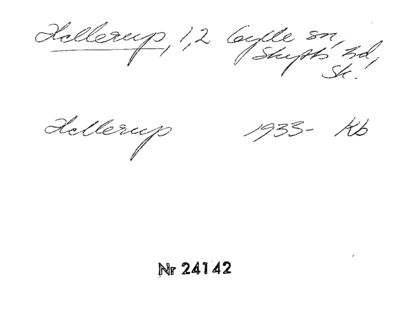 Hollerup, 1,2 Gylle sn,
Skytts hd,
Sk.
Hollerup 1933- Kb
Nr 24142